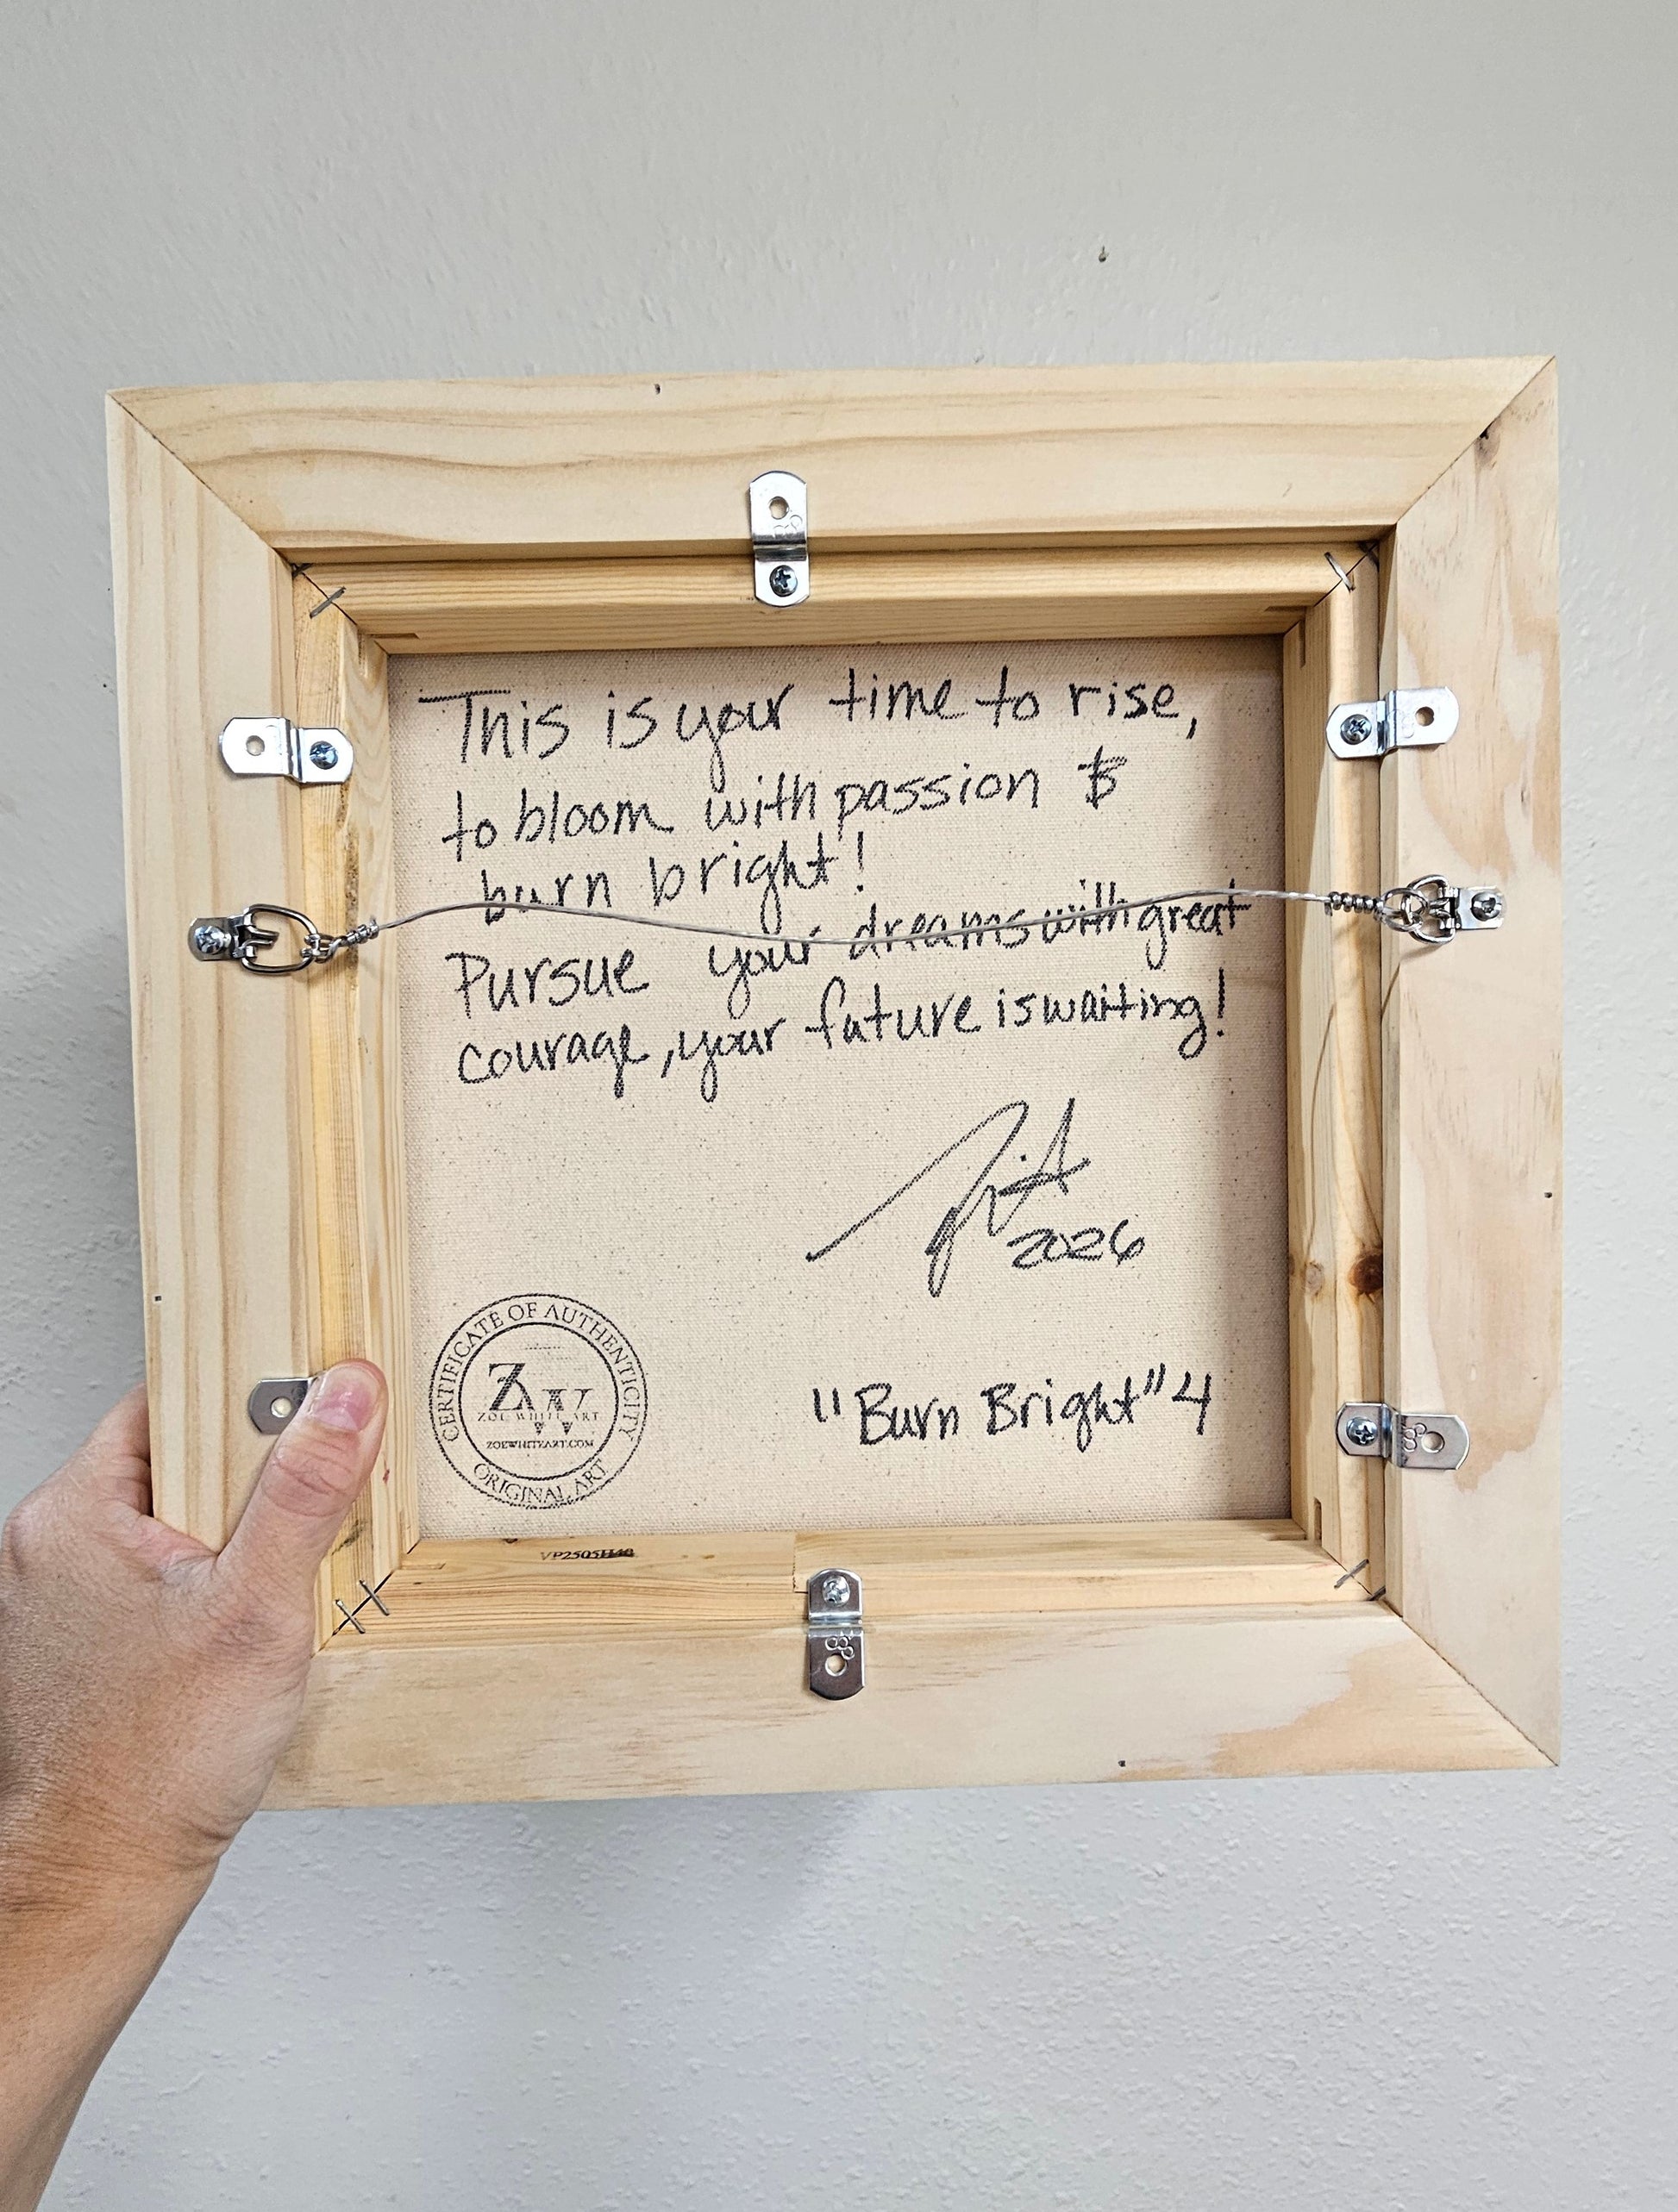 This is your time to rise,
to bloom with passion &
burn bright!
Pursue your dreams with great
courage, your future is waiting!
2026
"Burn Bright" 4
CERTIFICATE OF AUTHENTICITY
ZW
ZOE WHITE ART
ZOEWHITEART.COM
ORIGINAL ART